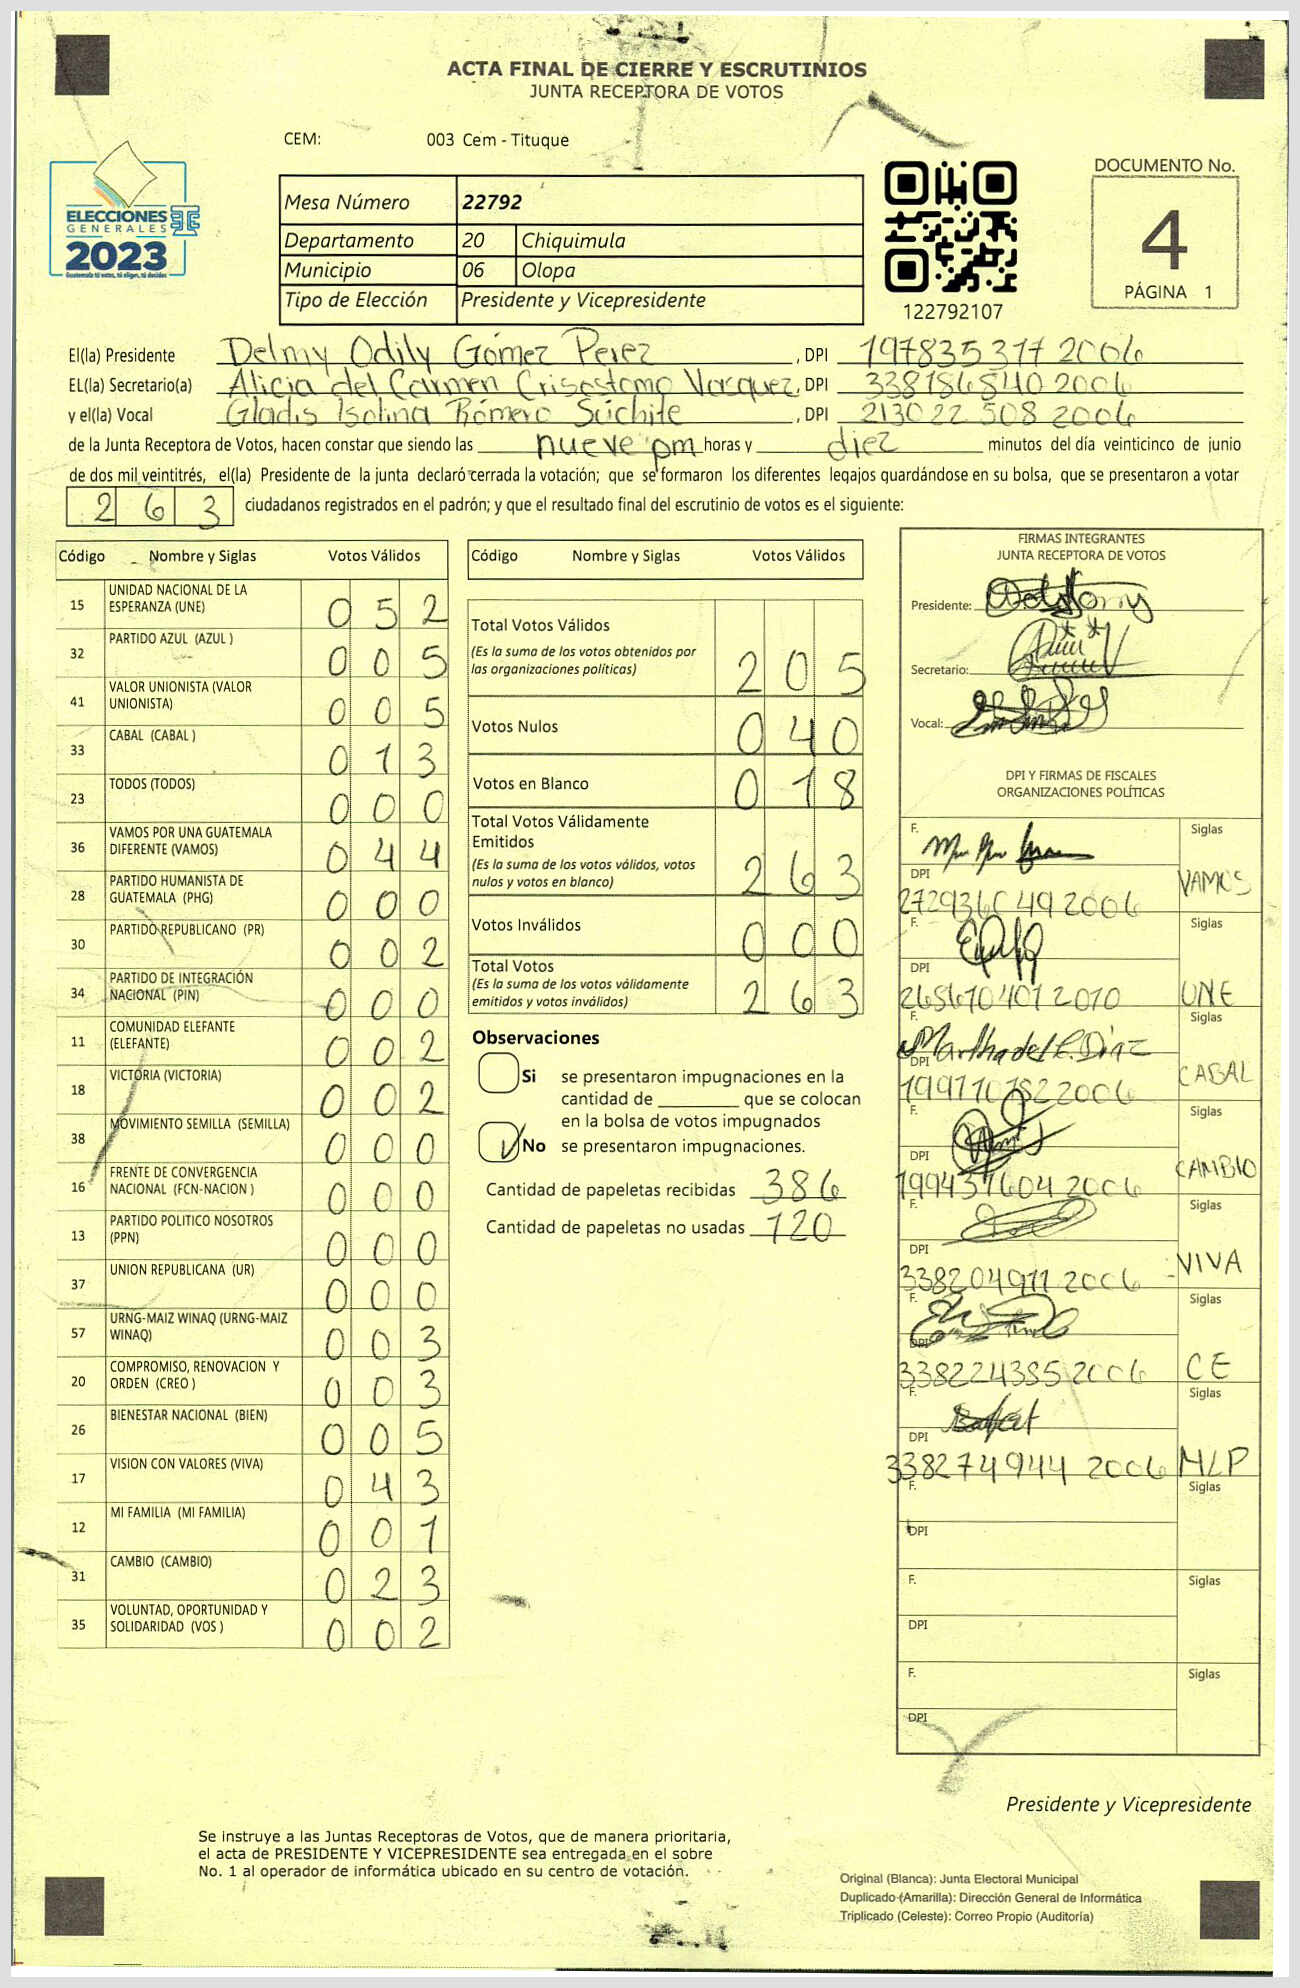 ACTA FINAL DE CIERRE Y ESCRUTINIOS
JUNTA RECEPTORA DE VOTOS
CEM: 003 Cem - Tituque
ELECCIONES
GENERALES
2023
Guatemala tú votas, tú eliges, tú decides
Mesa Número 22792
Departamento 20 Chiquimula
Municipio 06 Olopa
Tipo de Elección Presidente y Vicepresidente
122792107
DOCUMENTO No.
4
PÁGINA 1
El(la) Presidente Delmy Odily Gómez Perez, DPI 197835317 2006
EL(la) Secretario(a) Alicia del Carmen Crisostomo Vasquez, DPI 338186540 2006
y el(la) Vocal Gladis Isolina Rómero Súchite, DPI 213022508 2006
de la Junta Receptora de Votos, hacen constar que siendo las nueve pm horas y diez minutos del día veinticinco de junio
de dos mil veintitrés, el(la) Presidente de la junta declaró cerrada la votación; que se formaron los diferentes legajos guardándose en su bolsa, que se presentaron a votar
263 ciudadanos registrados en el padrón; y que el resultado final del escrutinio de votos es el siguiente:
Código Nombre y Siglas Votos Válidos
15 UNIDAD NACIONAL DE LA ESPERANZA (UNE) 052
32 PARTIDO AZUL (AZUL ) 005
41 VALOR UNIONISTA (VALOR UNIONISTA) 005
33 CABAL (CABAL ) 013
23 TODOS (TODOS) 000
36 VAMOS POR UNA GUATEMALA DIFERENTE (VAMOS) 044
28 PARTIDO HUMANISTA DE GUATEMALA (PHG) 000
30 PARTIDO REPUBLICANO (PR) 002
34 PARTIDO DE INTEGRACIÓN NACIONAL (PIN) 000
11 COMUNIDAD ELEFANTE (ELEFANTE) 002
18 VICTORIA (VICTORIA) 002
38 MOVIMIENTO SEMILLA (SEMILLA) 000
16 FRENTE DE CONVERGENCIA NACIONAL (FCN-NACION ) 000
13 PARTIDO POLITICO NOSOTROS (PPN) 000
37 UNION REPUBLICANA (UR) 000
57 URNG-MAIZ WINAQ (URNG-MAIZ WINAQ) 003
20 COMPROMISO, RENOVACION Y ORDEN (CREO ) 003
26 BIENESTAR NACIONAL (BIEN) 005
17 VISION CON VALORES (VIVA) 043
12 MI FAMILIA (MI FAMILIA) 001
31 CAMBIO (CAMBIO) 023
35 VOLUNTAD, OPORTUNIDAD Y SOLIDARIDAD (VOS ) 002
Código Nombre y Siglas Votos Válidos
Total Votos Válidos
(Es la suma de los votos obtenidos por
las organizaciones políticas) 205
Votos Nulos 040
Votos en Blanco 018
Total Votos Válidamente
Emitidos
(Es la suma de los votos válidos, votos
nulos y votos en blanco) 263
Votos Inválidos 000
Total Votos
(Es la suma de los votos válidamente
emitidos y votos inválidos) 263
Observaciones
Si se presentaron impugnaciones en la
cantidad de ________ que se colocan
en la bolsa de votos impugnados
No se presentaron impugnaciones.
Cantidad de papeletas recibidas 386
Cantidad de papeletas no usadas 120
FIRMAS INTEGRANTES
JUNTA RECEPTORA DE VOTOS
Presidente:
Secretario:
Vocal:
DPI Y FIRMAS DE FISCALES
ORGANIZACIONES POLÍTICAS
F. Siglas
DPI VAMOS
272936049 2006
F. Siglas
DPI
265670401 2010 UNE
F. Martha del R. Díaz Siglas
DPI CABAL
199110782 2006
F. Siglas
DPI CAMBIO
199431604 2006
F. Siglas
DPI VIVA
338204911 2006
F. Siglas
DPI
338224385 2006 CE
F. Siglas
DPI
338274944 2006 MLP
F. Siglas
DPI
F. Siglas
DPI
F. Siglas
DPI
Presidente y Vicepresidente
Se instruye a las Juntas Receptoras de Votos, que de manera prioritaria,
el acta de PRESIDENTE Y VICEPRESIDENTE sea entregada en el sobre
No. 1 al operador de informática ubicado en su centro de votación.
Original (Blanca): Junta Electoral Municipal
Duplicado (Amarilla): Dirección General de Informática
Triplicado (Celeste): Correo Propio (Auditoría)